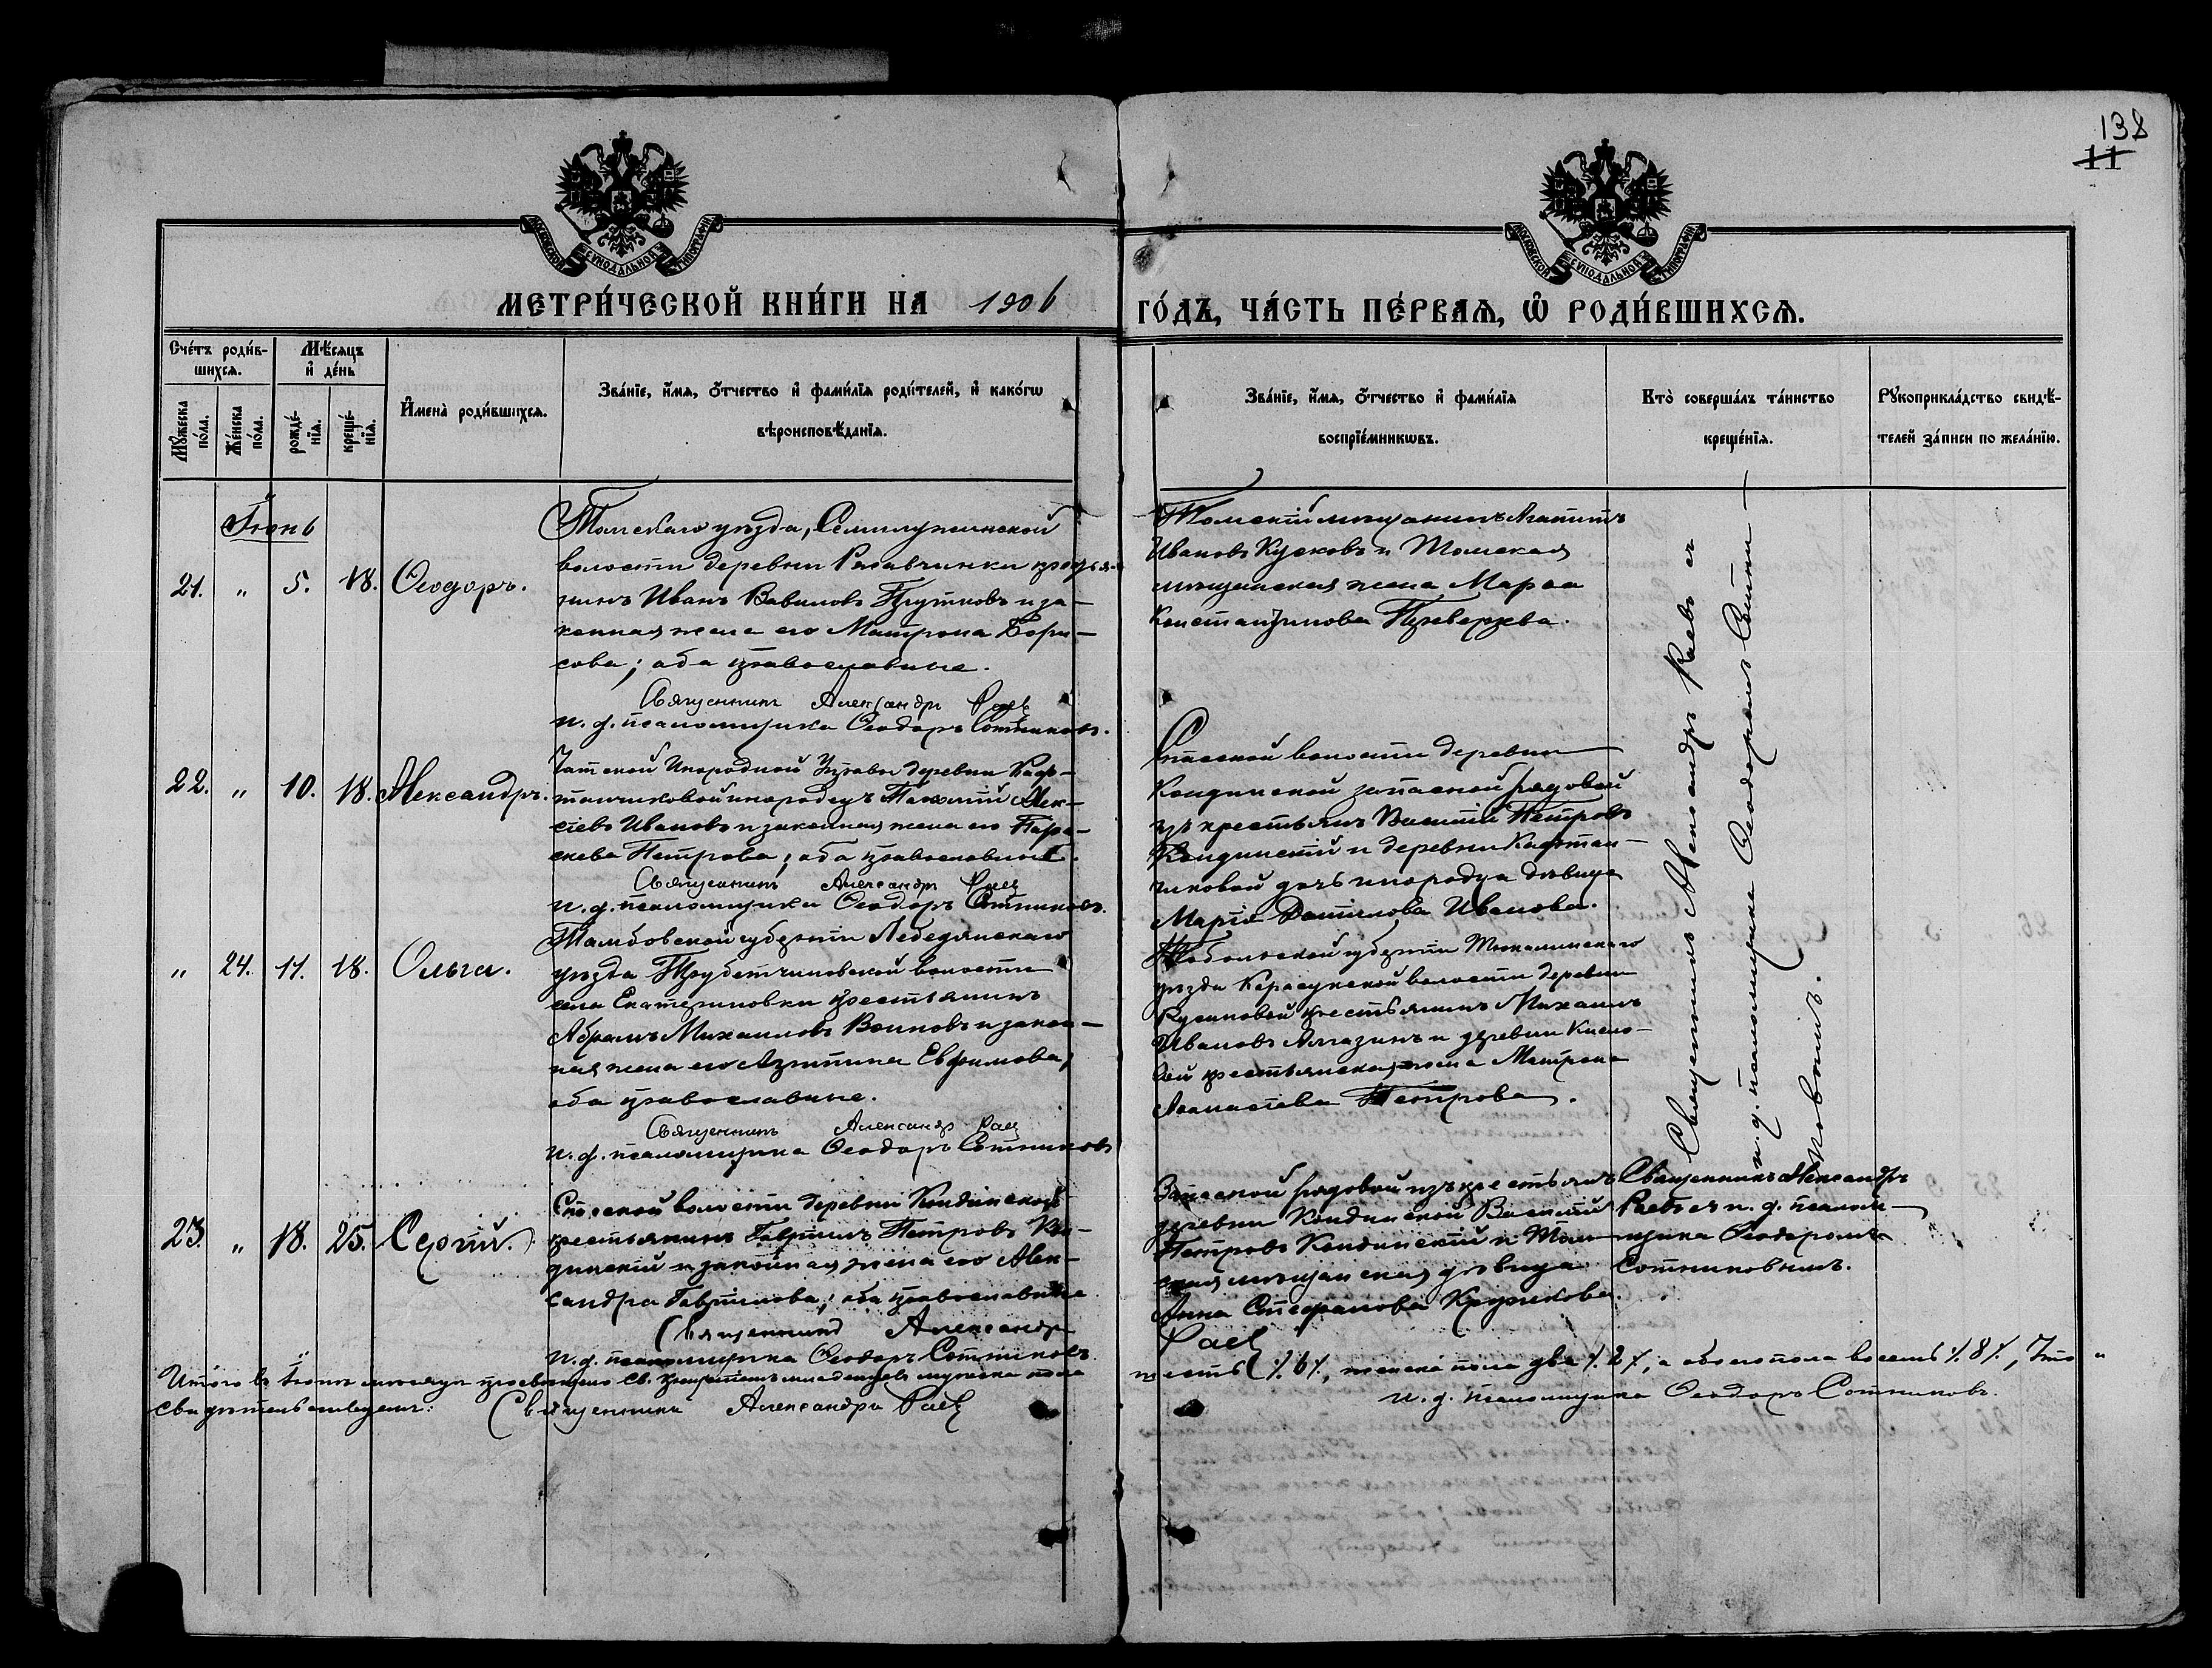 138
11
МОСКОВСКОЙ СѴНОДАЛЬНОЙ ТИПОГРАФІИ
МОСКОВСКОЙ СѴНОДАЛЬНОЙ ТИПОГРАФІИ
МЕТРИ́ЧЕСКОЙ КНИ́ГИ НА 1906
ГО́ДЪ, ЧА́СТЬ ПЕ́РВАѦ, Ѽ РОДИ́ВШИХСѦ.
Сче́тъ роди́в-
шихсѧ.
Мꙋ́жеска
по́ла.
Же́нска
по́ла.
Мѣ́сѧцъ
и҆ де́нь
рожде́-
нїѧ.
креще́-
нїѧ.
И҆мена̀ роди́вшихсѧ.
Зва́нїе, и҆́мѧ, ѻ҆́тчество и҆ фами́лїѧ роди́телей, и҆ како́гѡ
вѣроисповѣ́данїѧ.
Зва́нїе, и҆́мѧ, ѻ҆́тчество и҆ фами́лїѧ
воспрїе́мникѡвъ.
Кто̀ соверша́лъ та́инство
креще́нїѧ.
Рꙋкоприкла́дство свидѣ́-
телей за́писи по жела́нїю.
Іюнь
21. " 5. 18. Ѳеодоръ.
Томскаго уѣзда, Семилужинской
волости деревни крестья-
нинъ Иванъ Вавиловъ Прутковъ и за-
конная жена его Матрона Бори-
сова; оба православные.
Священникъ Александръ Раев
и. д. псаломщика Ѳеодоръ Сотниковъ.
Томскій мѣщанинъ
Ивановъ Кусковъ и Томская
мѣщанская жена Марѳа
Константинова
Священникъ Александръ Раевъ съ
и. д. псаломщика Ѳеодоромъ Сот-
никовымъ.
22. " 10. 18. Александръ.
Чатской Инородной Управы деревни Каф-
танчиковой инородецъ Алек-
сѣевъ Ивановъ и законная жена его Пара-
скева Петрова; оба православные.
Священникъ Александръ Раев
и. д. псаломщика Ѳеодоръ Сотниковъ.
Спасской волости деревни
Кондинской запасной рядовой
изъ крестьянъ Василій Петровъ
Кондинскій и деревни Кафтан-
чиковой дочь инородца дѣвица
Марія Данилова Иванова.
" 24. 11. 18. Ольга.
Тамбовской губерніи Лебедянскаго
уѣзда Трубетчиновской волости
села Екатериновки крестьянинъ
Абрамъ Михаиловъ Воиновъ и закон-
ная жена его Евфимова;
оба православные.
Священникъ Александр Раев
и. д. псаломщика Ѳеодоръ Сотниковъ
Тобольской губерніи Тюкалинскаго
уѣзда волости деревни
крестьянинъ Михаилъ
Ивановъ и деревни Кисло-
вой крестьянская жена Матрона
Аѳанасіева Петрова.
23. " 18. 25. Сергій.
Спасской волости деревни Кондинской
крестьянинъ Гавріилъ Петровъ Кон-
динскій и законная жена его Алек-
сандра Гавріилова; оба православные.
Священникъ Александръ Раев
и. д. псаломщика Ѳеодоръ Сотниковъ
Запасной рядовой изъ крестьянъ
деревни Кондинской Василій
Петровъ Кондинскій и Том-
ская мѣщанская дѣвица
Анна Стефанова Кружкова.
Священникъ Александръ
Раевъ съ и. д. псалом-
щика Ѳеодоромъ
Сотниковымъ.
Итого въ Іюнѣ мѣсяцѣ просвѣщено св. крещеніемъ младенцевъ мужеска пола шесть /.6/., женска пола два /.2/., а обоего пола восемь /.8/., Что
свидѣтельствуемъ: Священникъ Александръ Раев
и. д. псаломщика Ѳеодоръ Сотниковъ.